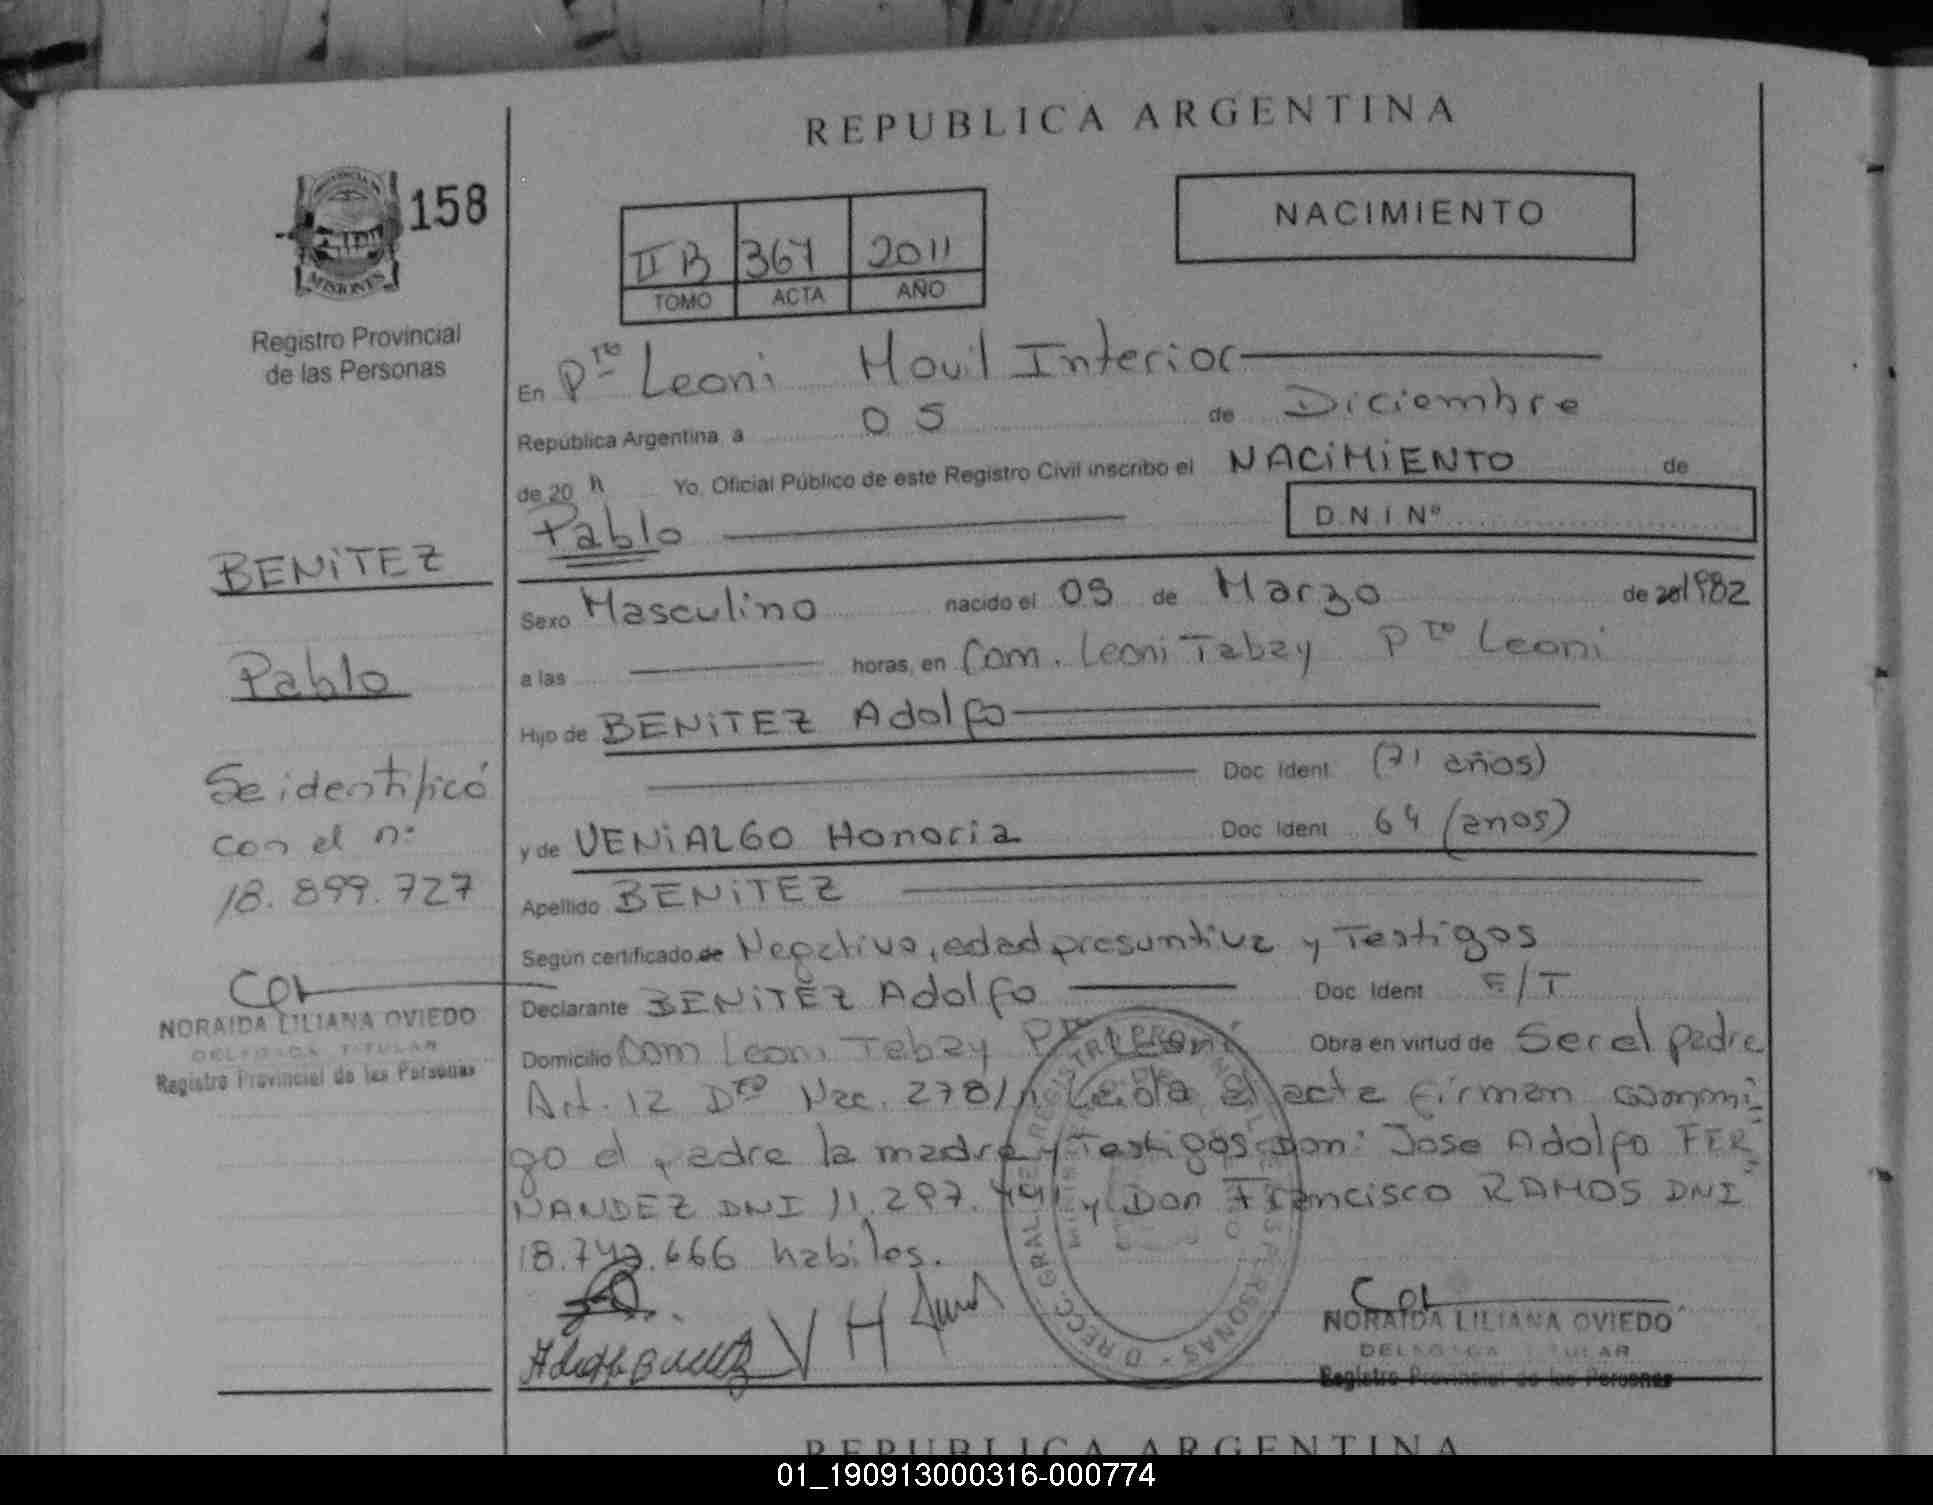 REPUBLICA ARGENTINA
158
MISIONES
Registro Provincial
de las Personas
NACIMIENTO
II B 367 2011
TOMO ACTA AÑO
En Pto Leoni Movil Interior
República Argentina, a 05 de Diciembre
de 20 11 Yo, Oficial Público de este Registro Civil inscribo el NACIMIENTO de
Pablo
D.N.I Nº
BENITEZ
Pablo
Se identificó
con el nº
18.899.727
NORAIDA LILIANA OVIEDO
DELEGADA TITULAR
Registro Provincial de las Personas
Sexo Masculino nacido el 05 de Marzo de 1982
a las horas, en Com. Leoni Tabay Pto Leoni
Hijo de BENITEZ Adolfo
Doc Ident (71 años)
y de VENIALGO Honoria Doc Ident 64 (anos)
Apellido BENITEZ
Según certificado de Negativo, edad presuntiva y Testigos
Declarante BENITEZ Adolfo Doc Ident E/T
Domicilio Com Leoni Tabay Pto Leoni Obra en virtud de Ser el padre
Art. 12 Dto Nac. 278/11 Leida el acta firman conmi-
go el padre la madre y Testigos Don: Jose Adolfo FER-
NANDEZ DNI 11.297. y Don Francisco RAMOS DNI
18.743.666 habiles.
Adolfo Benitez V H
NORAIDA LILIANA OVIEDO
DELEGADA TITULAR
Registro Provincial de las Personas
REPUBLICA ARGENTINA
01_190913000316-000774